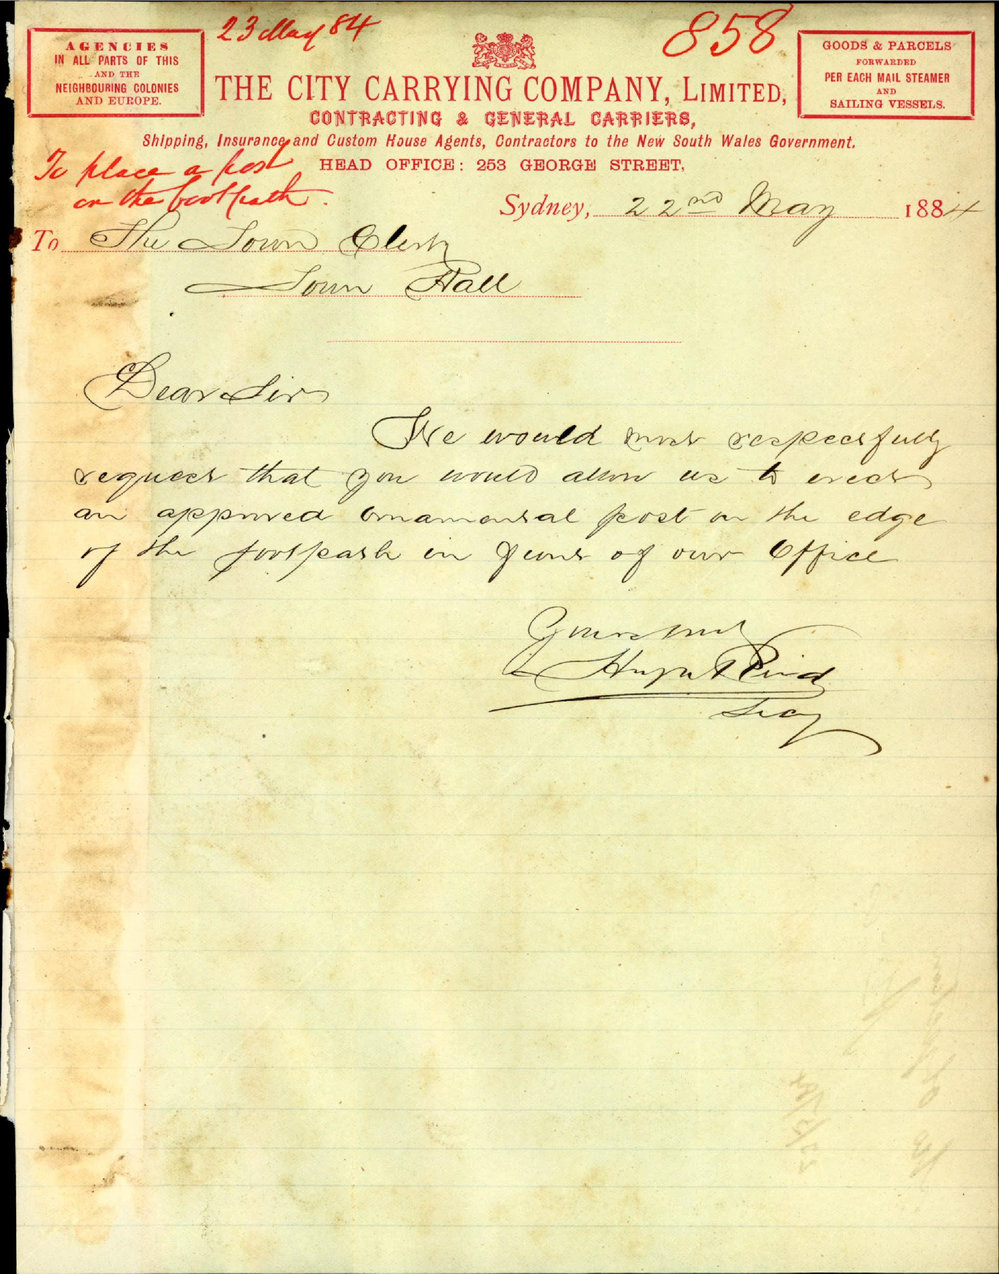 23 May 84
858
AGENCIES
IN ALL PARTS OF THIS
AND THE
NEIGHBOURING COLONIES
AND EUROPE.
GOODS & PARCELS
FORWARDED
PER EACH MAIL STEAMER
AND
SAILING VESSELS.
THE CITY CARRYING COMPANY, LIMITED,
CONTRACTING & GENERAL CARRIERS,
Shipping, Insurance and Custom House Agents, Contractors to the New South Wales Government.
HEAD OFFICE: 253 GEORGE STREET,
To place a post
on the footpath.
Sydney, 22nd May 1884
To The Town Clerk
Town Hall
Dear Sir
We would most respectfully
request that you would allow us to erect
an approved ornamental post on the edge
of the footpath in front of our Office
Yours truly
Reid
Secy